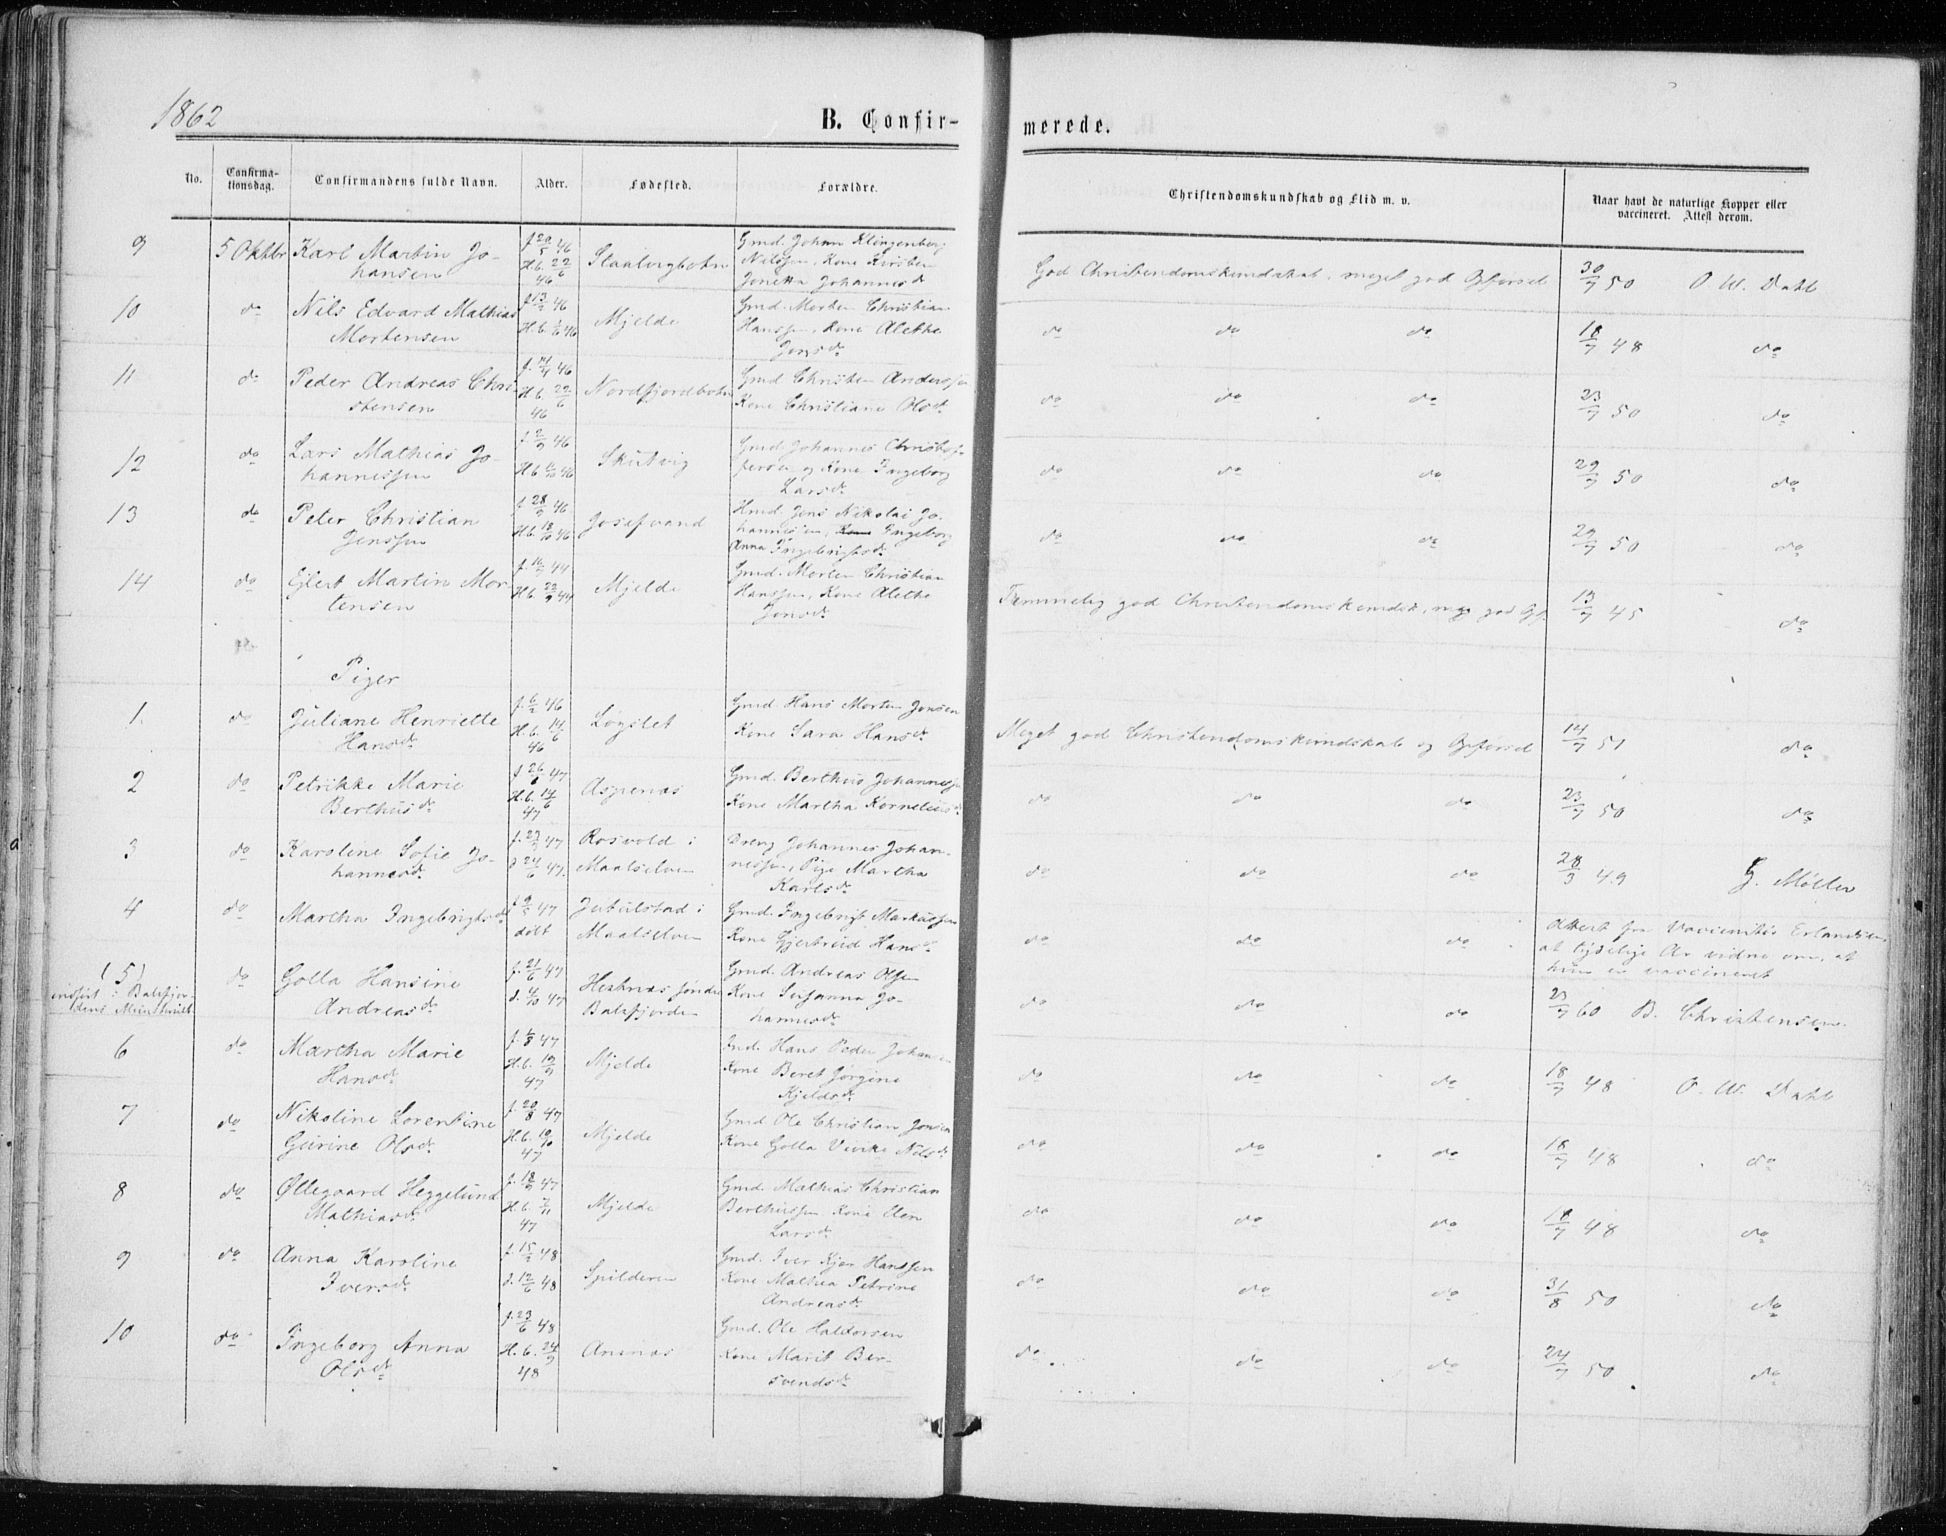 1862
B. Confir-
merede.
No.
Confirma-
tionsdag.
Confirmandens fulde Navn.
Alder.
Fødested.
Forældre.
Christendomskundskab og Flid m. v.
Naar havt de naturlige Kopper eller
vaccineret. Attest derom.
9 5 Oktbr Karl Martin Jo-
hansen
f 20/5 46
H.b. 22/6
46
Staalvigbotn
Gmd. Johan Klingenberg
Nilssen, Kone Kirsten
Jonetta Johannesd.
God Christendomskundskab, meget god Opførsel
30/7 50 O. W. Dahl
10 do Nils Edvard Mathias
Mortensen
Mjelde
Gmd. Morten Christian
Hanssen, Kone Alethe
Jonsd.
do do do
18/7 48 do
11 do Peder Andreas Chri-
stensen
H.b. 22/6
46
Nordfjordbotn
Gmd Christen Anderssen
Kone Christiane Olsd.
do do do
23/7 50 do
12 do Lars Mathias Jo-
hannessen
f 2/9 46
Skutvig
Gmd Johannes Christof-
fersen og Kone Ingeborg
Larsd.
do do do
29/7 50 do
13 do Peter Christian
Jenssen
f 28/9 46
H.b. 18/10 46
Josefvand
Hmd Jens Nikolai Jo-
hannessen, Kone Ingeborg
Anna Ingebrigtsd.
do do do
29/7 50 do
14 do Ejlert Martin Mor-
tensen
H.b. 22/9 44
Mjelde
Gmd. Morten Christian
Hanssen, Kone Alethe
Jonsd.
Temmelig god Christendomskundsk, meg god Opf.
13/7 45 do
Piger
1. do Juliane Henriette
Hansd.
f. 6/2 46
H.b. 14/6
46
Løgslet
Gmd Hans Morten Jensen
Kone Sara Hansd.
Meget god Christendomskundskab og Opførsel
14/7 51 do
2 do Petrikke Marie
Berthusd.
H.b. 14/6
47
Aspenæs
Gmd. Berthus Johannessen
Kone Martha Korneliusd.
do do do
23/7 50 do
3 do Karoline Sofie Jo-
hannesd.
d 24/6 47.
Rosvold i
Maalselven
Dreng Johannes Johan-
nessen, Pige Martha
Karlsd.
do do do
28/3 49 G. Møller
4 do Martha Ingebrigtsd.
døbt
Jutulstad i
Maalselven
Gmd. Ingebrigt Markussen
Kone Gjertrud Hansd.
do do do
Attest fra Vaccinatør Erlandsen,
at tydelige Ar vidne om, at
hun er vaccineret
(5)
indført i Balsfjor-
dens Ministerialb
do Golla Hansine
Andreasd.
f. 21/6 47
d. 4/10 47
Hestnæs søndre
Balsfjorden
Gmd. Andreas Olsen
Kone Susanna Jo-
hannesd.
do do do
23/7 60 B. Christensen.
6 do Martha Marie
Hansd.
H.b. 19/9
47
Mjelde
Ind. Hans Peder Johansen
Kone Beret Jørgine
Kjeldsd.
do do do
18/7 48 O. W. Dahl
7 do Nikoline Lorentine
Gurine Olsd.
f. 20/8 47
H.b. 19/9
47
Mjelde
Gmd Ole Christian Jonsen
Kone Golla Vivike Nilsd.
do do do
18/7 48 do
8 do Øllegaard Heggelund
Mathiasd.
f. 18/9 47
H.b. 7/11
47
Mjelde
Gmd. Mathias Christian
Berthussen Kone Elen
Larsd.
do do do
18/7 48 do
9 do Anna Karoline
Iversd.
f. 15/2 48
d. 12/6 48
Spilderen
Gmd. Iver Kjær Hanssen
Kone Mathea Petrine
Andreasd.
do do do
31/8 50 do
10 do Ingeborg Anna
Olsd.
f. 23/6 48
H.b. 24/9
48
Ansnæs
Gmd. Ole Haldorsen
Kone Marit Ber-
svendsd.
do do do
24/7 50 do